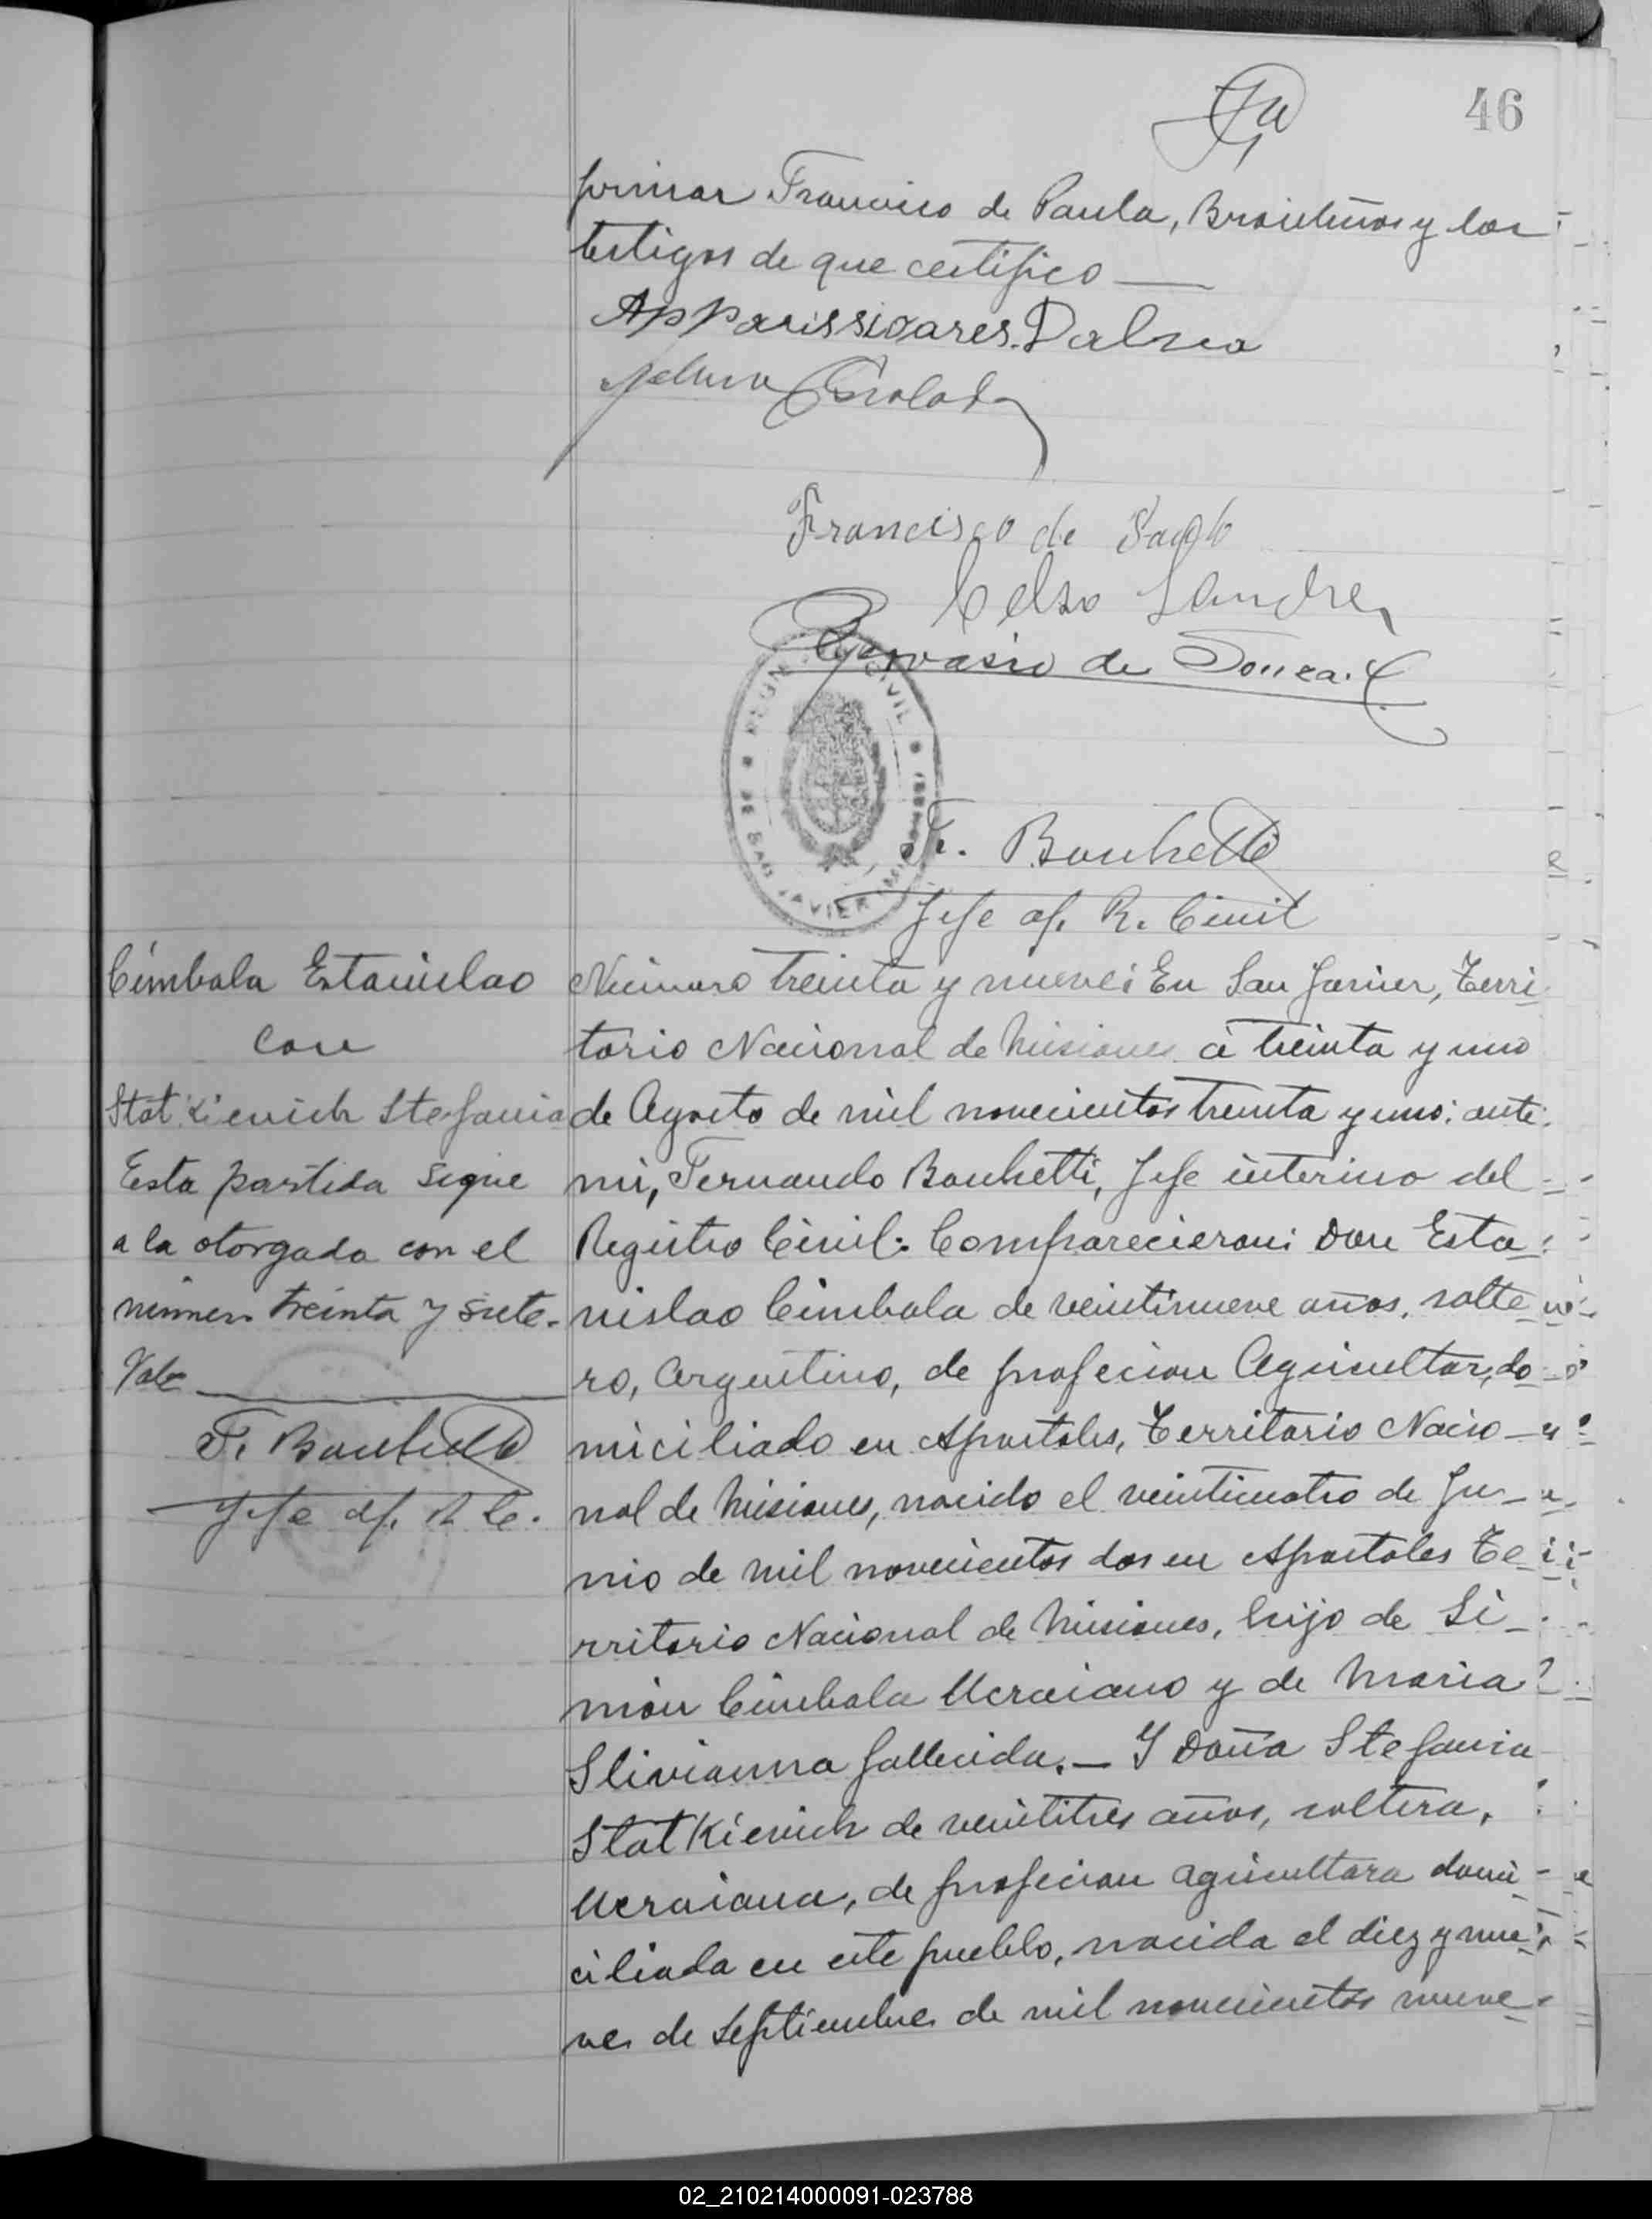 46
firmar Francisco de Paula, Brasileños y los
testigos de que certifico
Apparissioares Dalsea
Francisco de Paula
Celso Sandre
Gervasio de Souza
REGISTRO CIVIL
DE SAN JAVIER
F. Bonchetti
Jefe of. R. Civil
Cimbala Estanislao
con
Statkievich Stefania
Esta partida sigue
a la otorgada con el
número treinta y siete.
Vale
F. Bonchetti
Jefe of. R C.
Número treinta y nueve: En San Javier, Terri
torio Nacional de Misiones á treinta y uno
de Agosto de mil novecientos treinta y uno: ante
mi, Fernando Bonchetti, Jefe interino del
Registro Civil: Comparecieron: Don Esta
nislao Cimbala de veintinueve años, solte
ro, Argentino, de profecion Agricultor, do
miciliado en Apostoles, Territorio Nacio
nal de Misiones, nacido el veinticuatro de Ju
nio de mil novecientos dos en Apostoles Te
rritorio Nacional de Misiones, hijo de Si
món Cimbala Ucraiano y de Maria
Slivianna fallecida.— Y Doña Stefania
Statkievich de veintitres años, soltera,
Ucraiana, de profecion agricultora domi
ciliada en este pueblo, nacida el diez y nue
ve de Septiembre de mil novecientos nueve
02_210214000091-023788